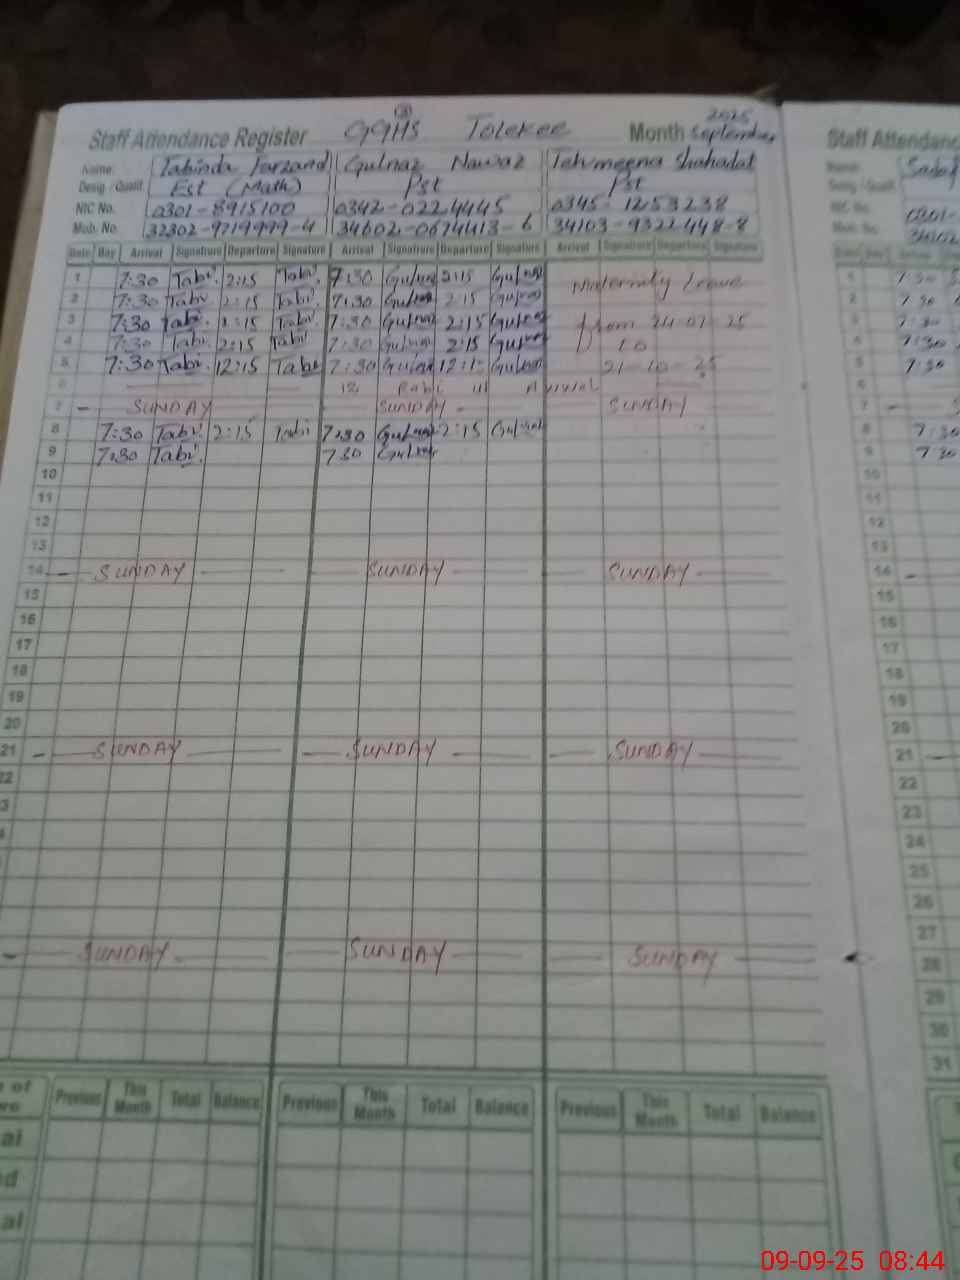 2025
GGHS Tolekee
Staff Attendance Register Month September
Name: Tabinda Farzand Gulnaz Nawaz Tehmeena Shahadat
Desig./Qualif. Est (Math) Pst Pst
NIC No. 0301-8915100 0342-0224445 0345-1253238
Mob. No. 32302-9719999-4 34602-0674413-6 34103-9322448-8
Date Day Arrival Signature Departure Signature Arrival Signature Departure Signature Arrival Signature Departure Signature
1 7:30 Tabi. 2:15 Tabi. 7:30 Gulnaz 2:15 Gulnaz Maternity Leave
2 7:30 Tabi. 2:15 Tabi. 7:30 Gulnaz 2:15 Gulnaz
3 7:30 Tabi. 2:15 Tabi. 7:30 Gulnaz 2:15 Gulnaz from 24-07-25
4 7:30 Tabi. 2:15 Tabi 7:30 Gulnaz 2:15 Gulnaz to
5 7:30 Tabi. 12:15 Tabi 7:30 Gulnaz 12:15 Gulnaz 21-10-25
6 12 Rabi ul Awwal
7 - SUNDAY SUNDAY - SUNDAY
8 7:30 Tabi. 2:15 Tabi 7:30 Gulnaz 2:15 Gulnaz
9 7:30 Tabi. 7:30 Gulnaz
10
11
12
13
14 - SUNDAY SUNDAY SUNDAY
15
16
17
18
19
20
21 - SUNDAY - SUNDAY - SUNDAY
22
- SUNDAY SUNDAY SUNDAY
Previous This Month Total Balance Previous This Month Total Balance Previous This Month Total Balance
Staff Attendanc
1 7:30
2 7:30
3 7:30
4 7:30
5 7:30
6
7 -
8 7:30
9 7:30
10
11
12
13
14 -
15
16
17
18
19
20
21 -
22
23
24
25
26
27
28
29
30
31
09-09-25 08:44